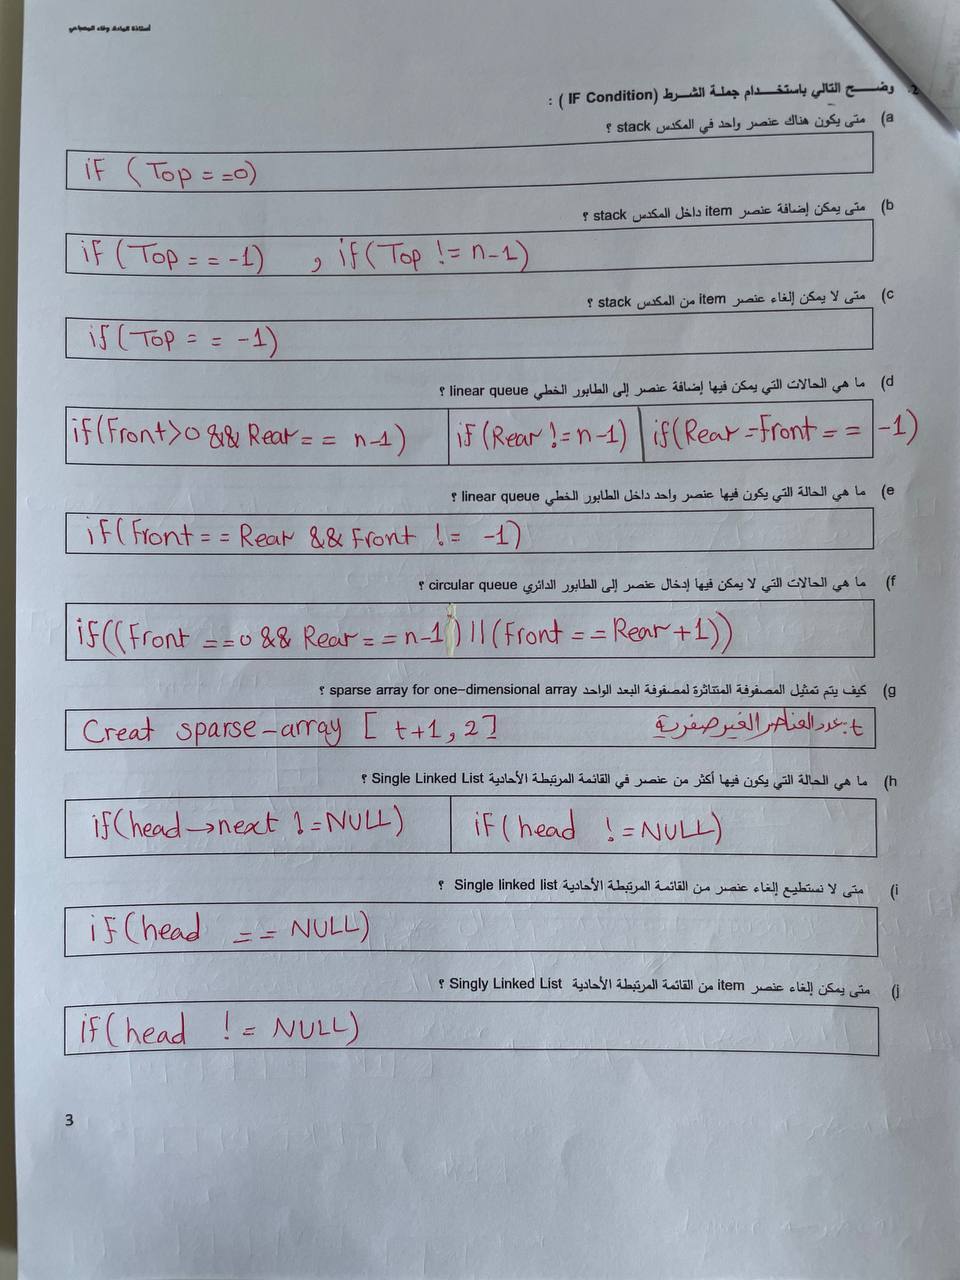 أستاذة المادة: وفاء المصباحي
2. وضـــح التالي باستخـــدام جملـة الشـــرط (IF Condition) :
a) متى يكون هناك عنصر واحد في المكدس stack ؟
if (Top = =0)
b) متى يمكن إضافة عنصر item داخل المكدس stack ؟
if (Top = = -1) , if (Top != n-1)
c) متى لا يمكن إلغاء عنصر item من المكدس stack ؟
if (Top = = -1)
d) ما هي الحالات التي يمكن فيها إضافة عنصر إلى الطابور الخطي linear queue ؟
if (Front>0 && Rear = = n-1) if (Rear != n-1) if (Rear =Front = = -1)
e) ما هي الحالة التي يكون فيها عنصر واحد داخل الطابور الخطي linear queue ؟
if (Front = = Rear && Front != -1)
f) ما هي الحالات التي لا يمكن فيها إدخال عنصر إلى الطابور الدائري circular queue ؟
if((Front ==0 && Rear = = n-1) || (Front == Rear +1))
g) كيف يتم تمثيل المصفوفة المتناثرة لمصفوفة البعد الواحد sparse array for one-dimensional array ؟
Creat sparse-array [ t+1, 2] t: عدد العناصر الغير صفرية
h) ما هي الحالة التي يكون فيها أكثر من عنصر في القائمة المرتبطة الأحادية Single Linked List ؟
if (head →next != NULL) if (head != NULL)
i) متى لا نستطيع إلغاء عنصر من القائمة المرتبطة الأحادية Single linked list ؟
if (head == NULL)
j) متى يمكن إلغاء عنصر item من القائمة المرتبطة الأحادية Singly Linked List ؟
if (head != NULL)
3